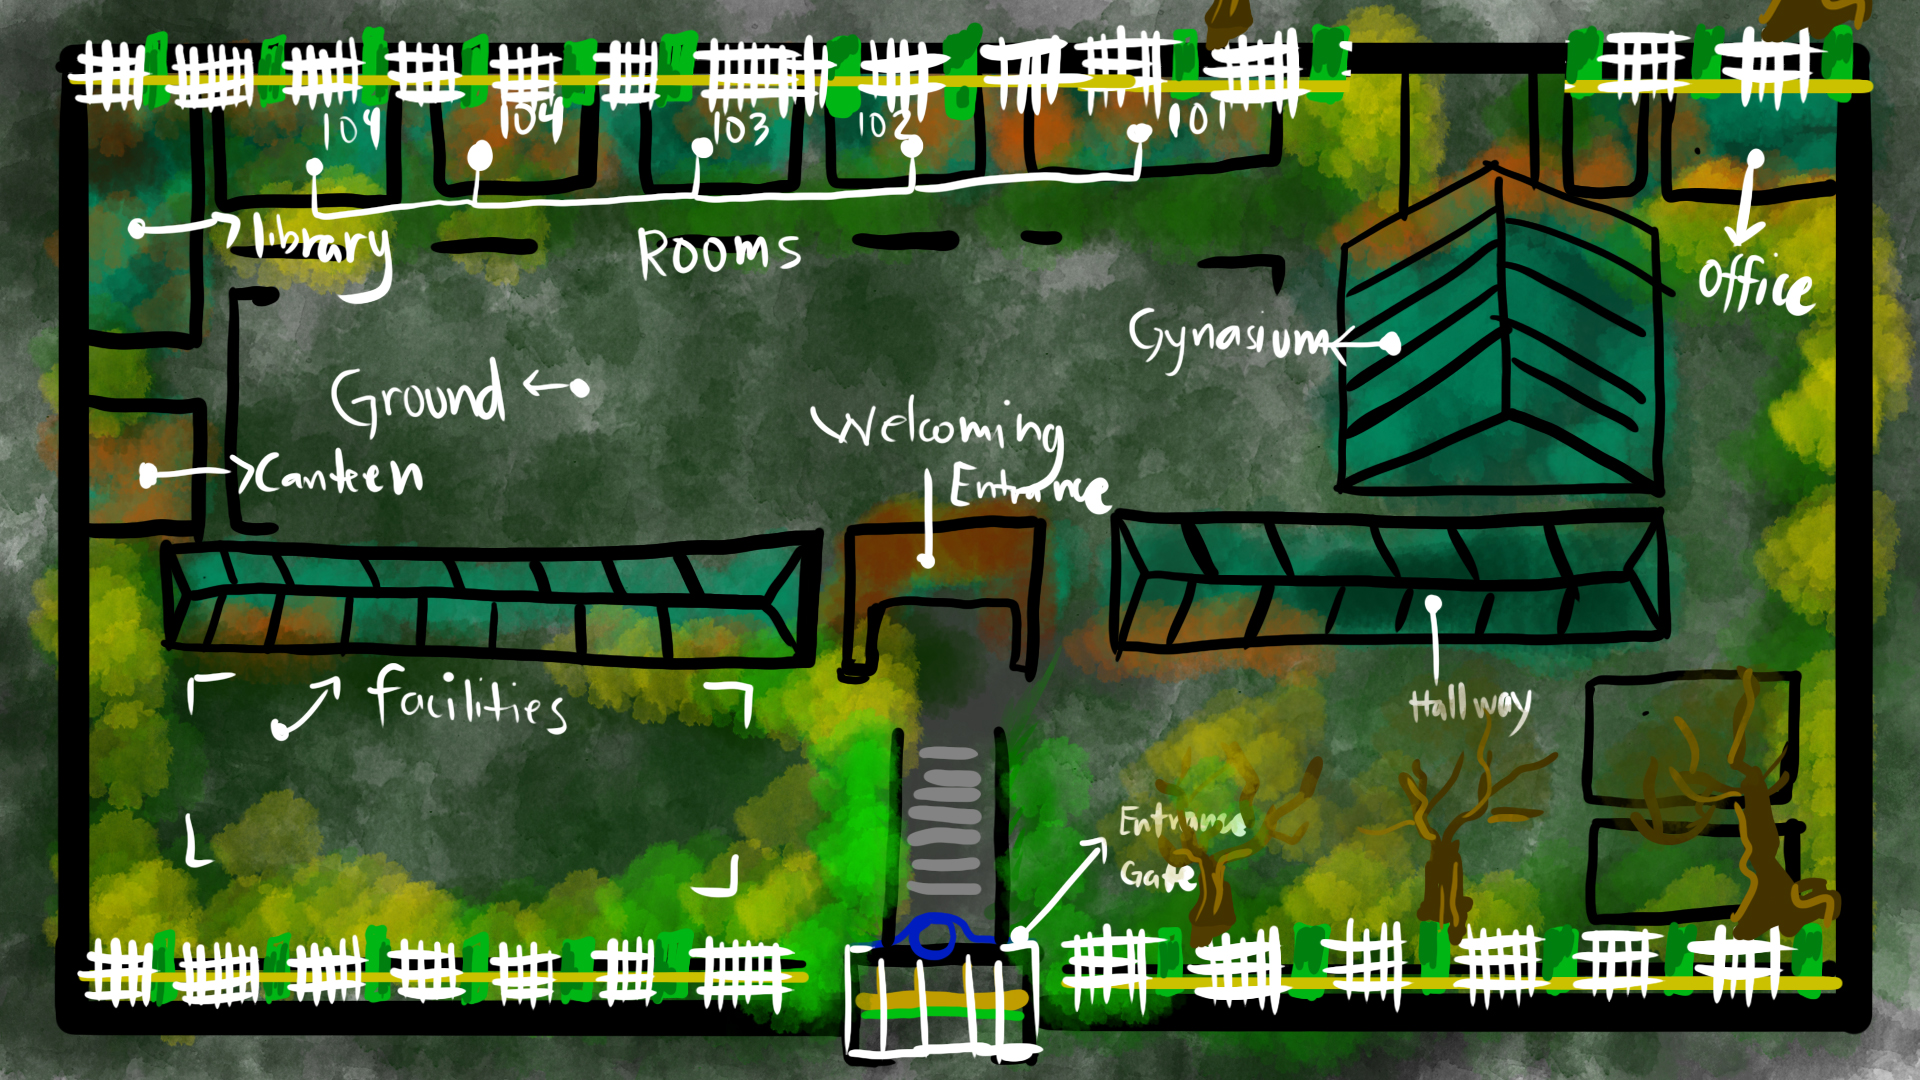 109
104
103
102
101
library
Rooms
Office
Gynasium
Ground
Welcoming
Entrance
Canteen
facilities
Hallway
Entranse
Gate